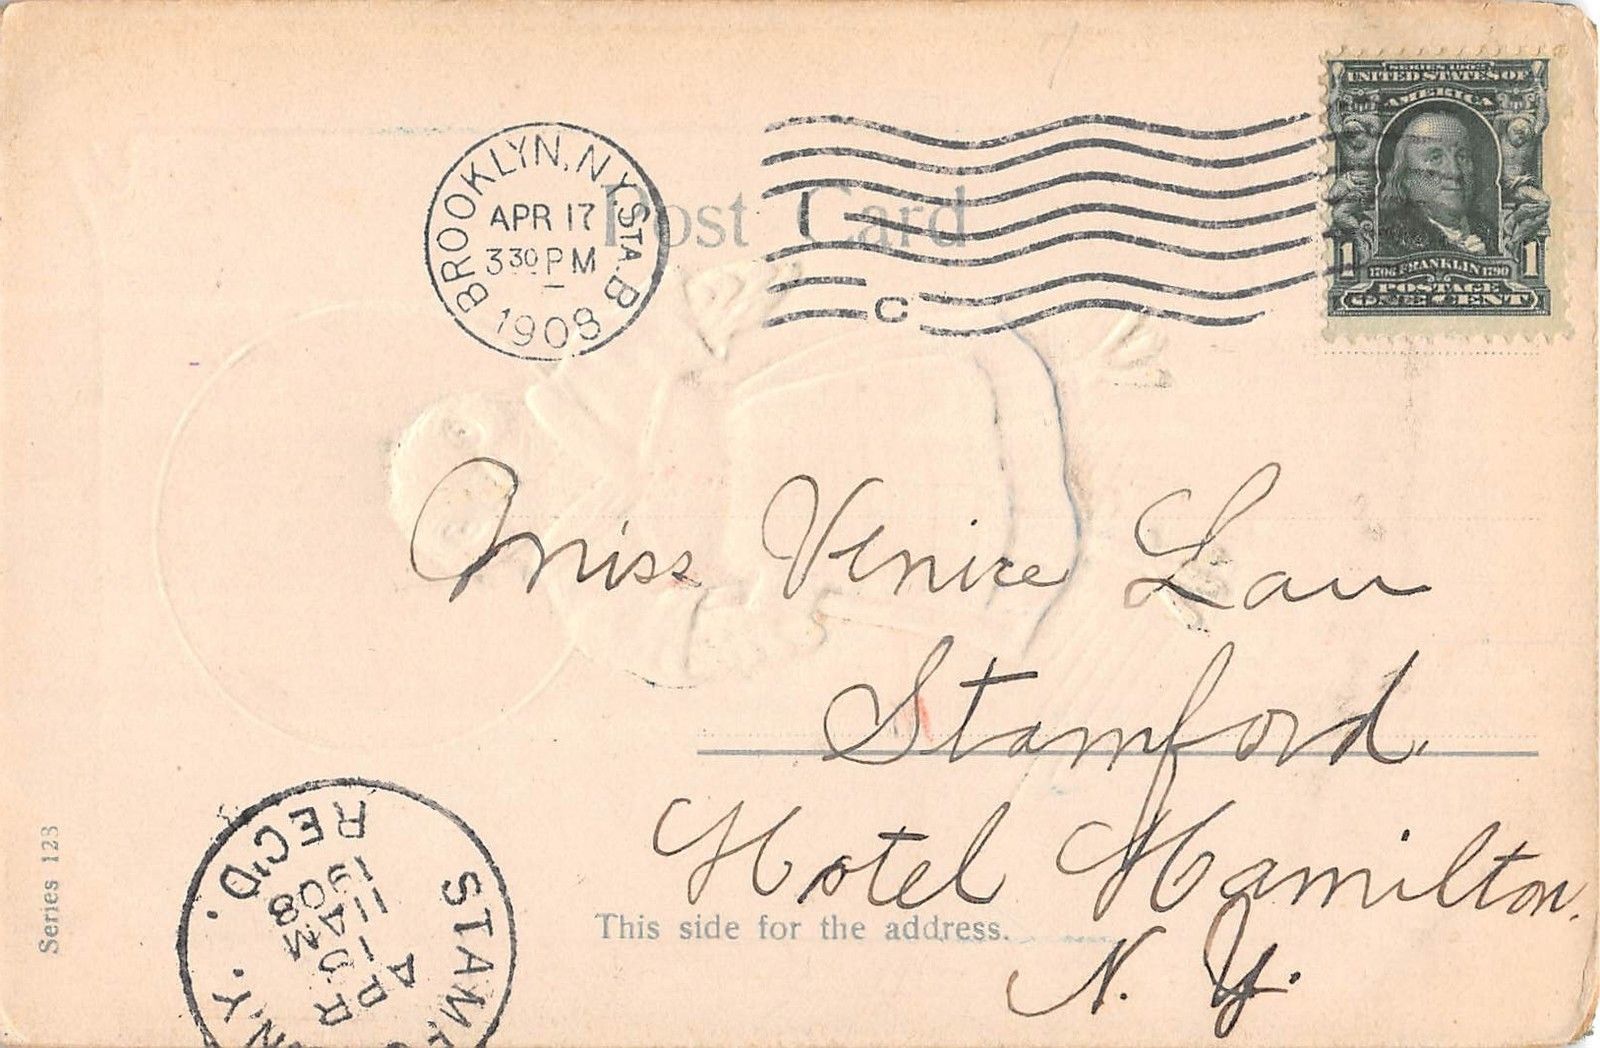 BROOKLYN, N.Y. STA. B
APR 17
3 30 PM
1908
C
Post Card
SERIES 1902
UNITED STATES OF
AMERICA
1 1706 FRANKLIN 1790 1
POSTAGE
ONE CENT
Miss Venice Lau
Stamford
Hotel Hamilton.
N. Y.
This side for the address.
Series 123
N.Y. REC'D.
1908
11 AM